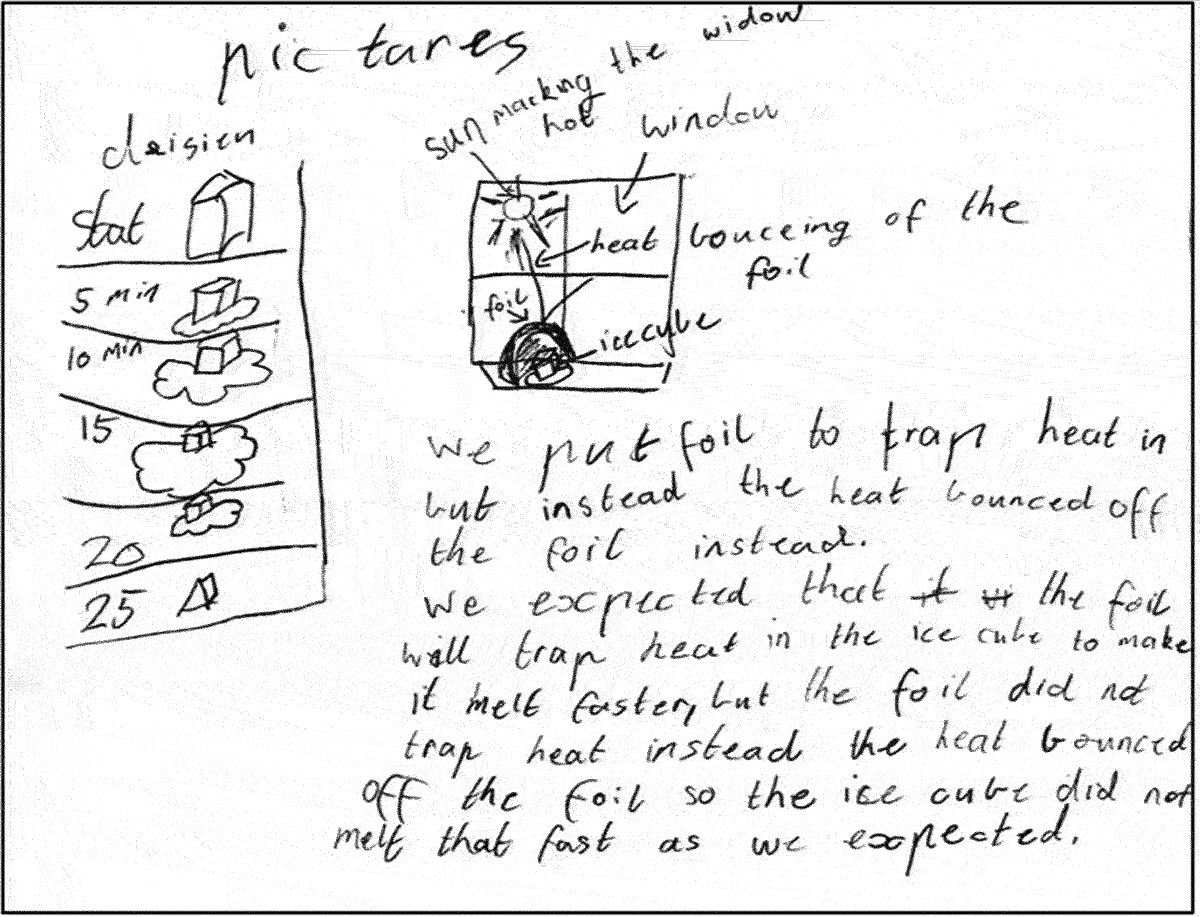 pictures
sun macking the widow
hot
window
Stat
heat bouceing of the
foil
5 min
foil
10 min
ice cube
15
20
25
We put foil to trap heat in
but instead the heat bounced off
the foil instead.
We excpected that it the foil
will trap heat in the ice cube to make
it melt faster, but the foil did not
trap heat instead the heat bounced
off the foil so the ice cube did not
melt that fast as we excpected.